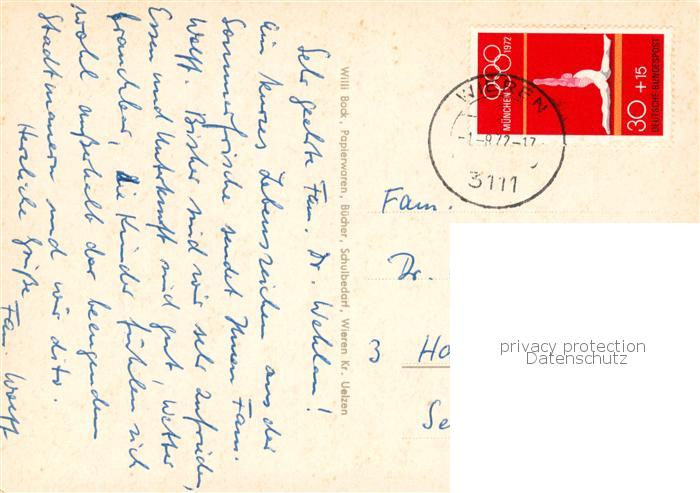 Sehr geehrte Fam. Dr. Wehlau!
Ein kurzes Lebenszeichen aus der
Sommerfrische sendet Ihnen Fam.
Wolff. Bisher sind wir sehr zufrieden,
Essen und Unterkunft sind gut, Wetter
brauchbar, die Kinder fühlen sich
wohl außerhalb der beengenden
Stadtmauern und wir dito.
Herzliche Grüße
Fam. Wolff
Willi Bock, Papierwaren, Bücher, Schulbedarf, Wieren Kr. Uelzen
MÜNCHEN 1972
30+15
DEUTSCHE BUNDESPOST
WIEREN
-1.-8.72-17
3111
Fam.
Dr.
3 Ha
Se
privacy protection
Datenschutz